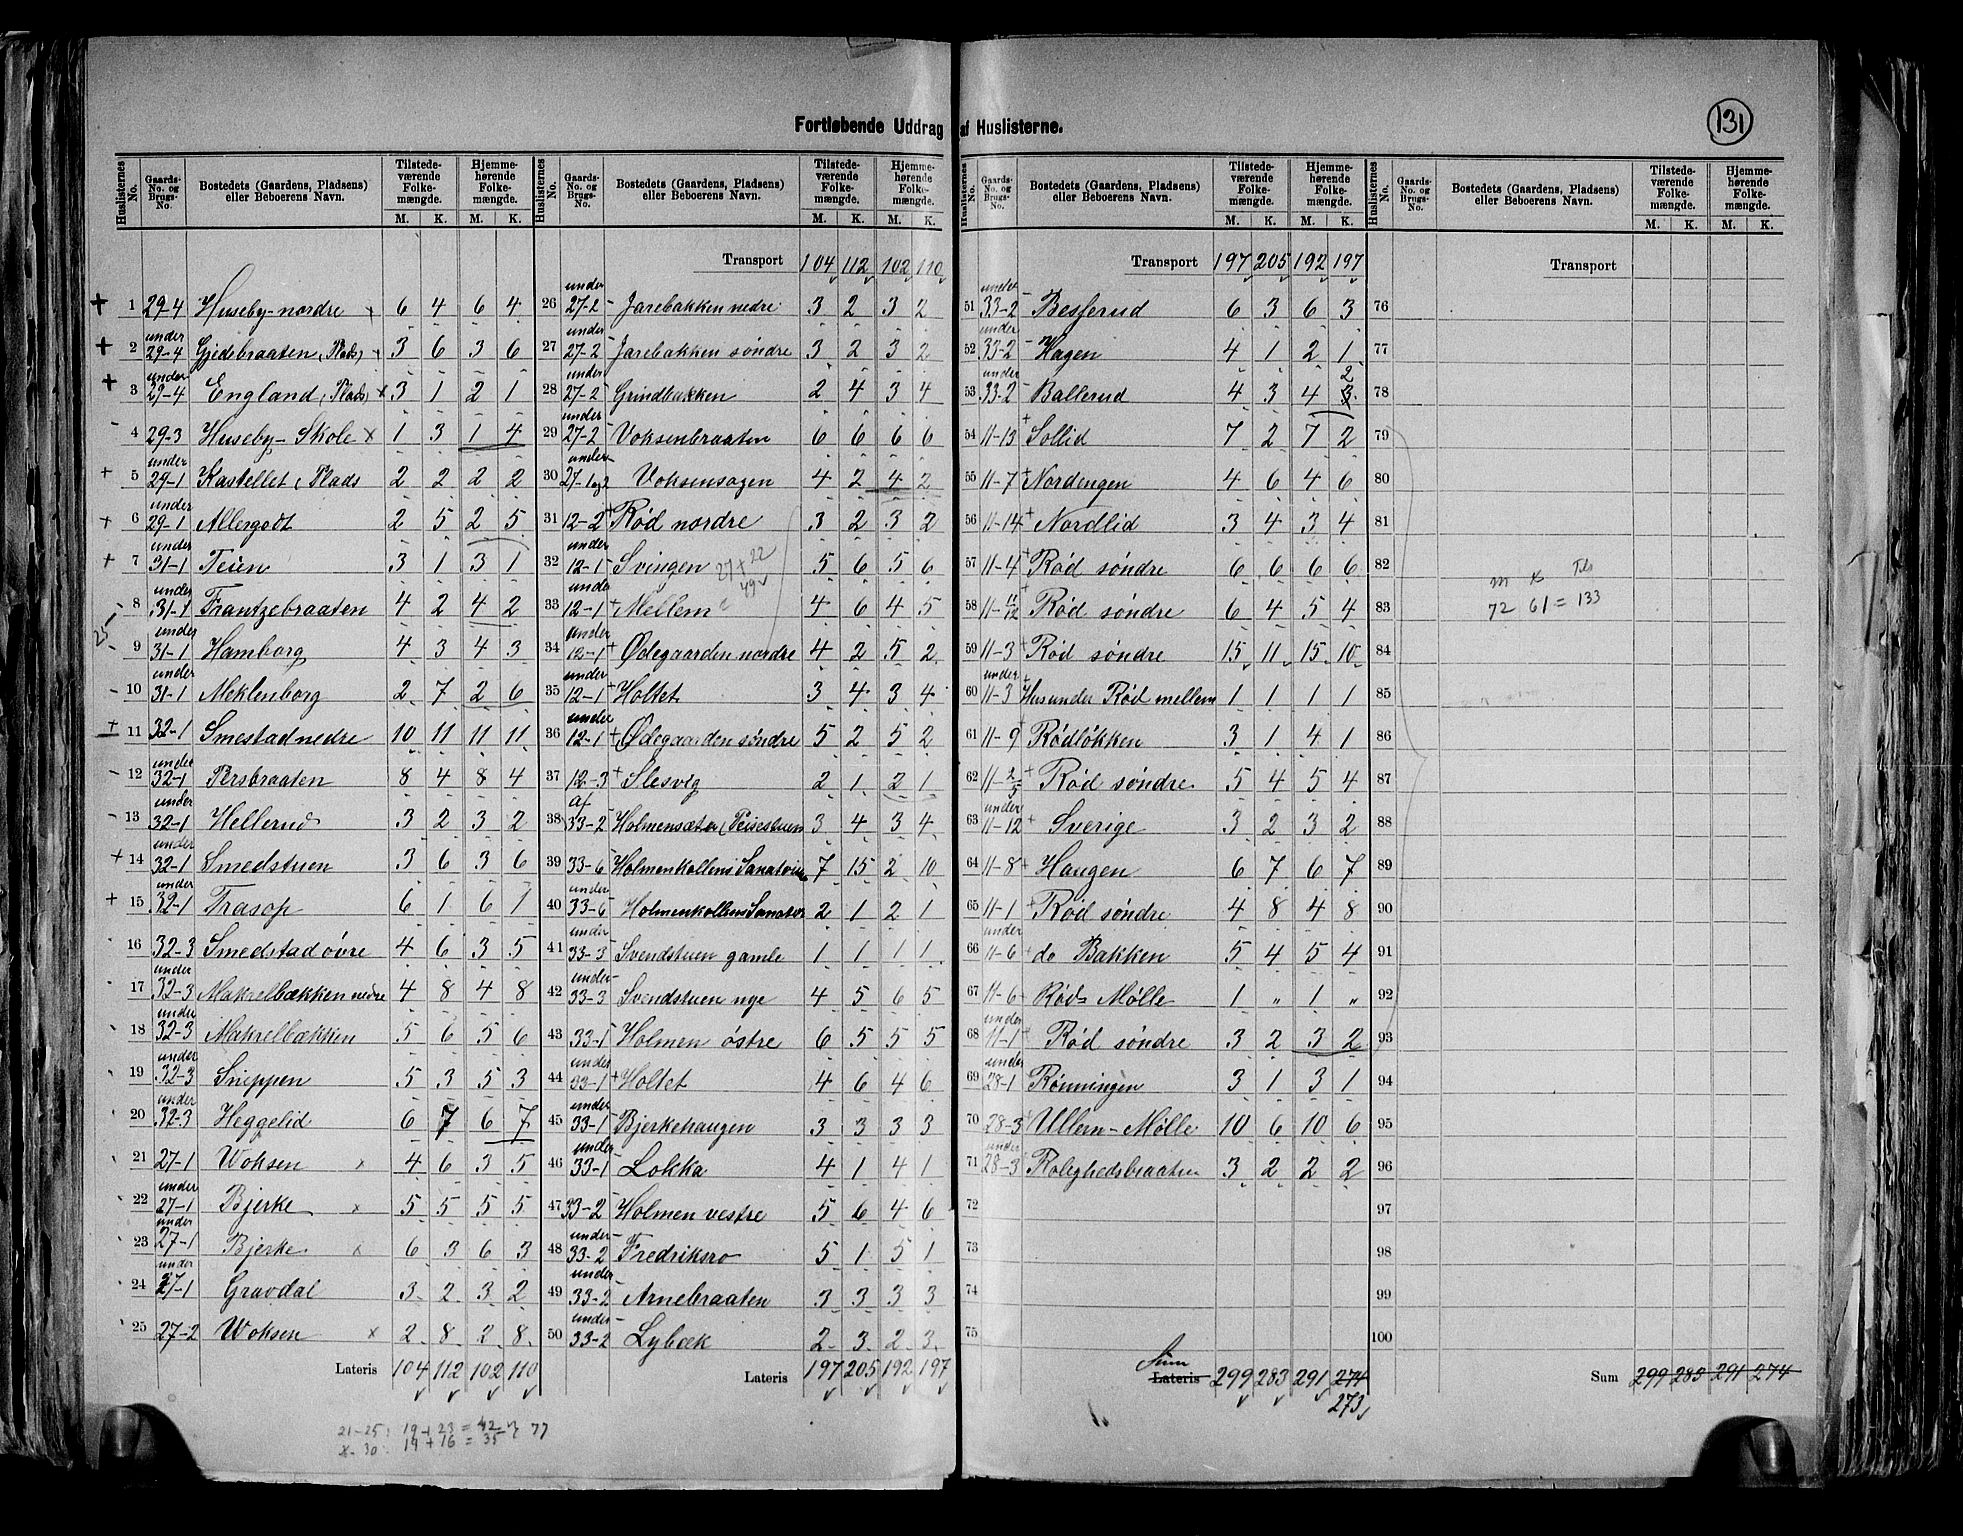 131
Fortløbende Uddrag af Huslisterne.
Huslisternes No. | Gaards-No. og Brugs-No. | Bostedets (Gaardens, Pladsens) eller Beboerens Navn. | Tilstedeværende Folkemængde. M. K. | Hjemmehørende Folkemængde. M. K.
1 29-4 Huseby nordre 6 4 6 4
2 under 29-4 Gjedebraaten (Plads) 3 6 3 6
3 under 29-4 England (Plads) x 3 1 2 1
4 29-3 Huseby-Skole x 1 3 1 4
5 under 29-1 Kastellet, Plads 2 2 2 2
6 under 29-1 Allergodt 2 5 2 5
7 under 31-1 Teien 3 1 3 1
8 under 31-1 Frantzebraaten 4 2 4 2
9 under 31-1 Hamborg 4 3 4 3
10 under 31-1 Meklenborg 2 7 2 6
11 32-1 Smestad nedre 10 11 11 11
12 under 32-1 Persbraaten 8 4 8 4
13 under 32-1 Hellerud 3 2 3 2
14 under 32-1 Smedstuen 3 6 3 6
15 under 32-1 Trasop 6 1 6 1
16 32-3 Smedstad øvre 4 6 3 5
17 under 32-3 Makrelbækken nedre 4 8 4 8
18 under 32-3 Makrelbækken 5 6 5 6
19 under 32-3 Snippen 5 3 5 3
20 under 32-3 Heggelid 6 7 6 7
21 27-1 Woksen x 4 6 3 5
22 under 27-1 Bjerke x 5 5 5 5
23 under 27-1 Bjerke x 6 3 6 3
24 under 27-1 Gravdal 3 2 3 2
25 27-2 Woksen x 2 8 2 8
Lateris 104 112 102 110
21-25: 19+23=42
19+16=35
77
Huslisternes No. | Gaards-No. og Brugs-No. | Bostedets (Gaardens, Pladsens) eller Beboerens Navn. | Tilstedeværende Folkemængde. M. K. | Hjemmehørende Folkemængde. M. K.
Transport 104 112 102 110
26 under 27-2 Jarebakken nedre 3 2 3 2
27 under 27-2 Jarebakken søndre 3 2 3 2
28 under 27-2 Grindbakken 2 4 3 4
29 under 27-2 Voksenbraaten 6 6 6 6
30 under 27-1og2 Voksensagen 4 2 4 2
31 12-2 Rød nordre 3 2 3 2
32 under 12-1 Svingen 27+22 49 5 6 5 6
33 under 12-1 Mellem 4 6 4 5
34 under 12-1 Ødegaarden nordre 4 2 5 2
35 under 12-1 Holtet 3 4 3 4
36 under 12-1 Ødegaarden søndre 5 2 5 2
37 12-3 Slesvig 2 1 2 1
38 af 33-2 Holmensæter, Peisestuen 3 4 3 4
39 33-6 Holmenkollens Sanatorium 7 15 2 10
40 under 33-6 Holmenkollens Sanator 2 1 2 1
41 under 33-3 Svendstuen gamle 1 1 1 1
42 under 33-3 Svendstuen nye 4 5 6 5
43 33-1 Holmen østre 6 5 5 5
44 under 33-1 Holtet 4 6 4 6
45 under 33-1 Bjerkehaugen 3 3 3 3
46 under 33-1 Lokka 4 1 4 1
47 33-2 Holmen vestre 5 6 4 6
48 under 33-2 Fredriksro 5 1 5 1
49 under 33-2 Arnebraaten 3 3 3 3
50 under 33-2 Lybæk 2 3 2 3
Lateris 197 205 192 197
Huslisternes No. | Gaards-No. og Brugs-No. | Bostedets (Gaardens, Pladsens) eller Beboerens Navn. | Tilstedeværende Folkemængde. M. K. | Hjemmehørende Folkemængde. M. K.
Transport 197 205 192 197
51 under 33-2 Besserud 6 3 6 3
52 under 33-2 Hagen 4 1 2 1
53 under 33-2 Ballerud 4 3 4 3 2
54 11-13 Sollid 7 2 7 2
55 11-7 Nordengen 4 6 4 6
56 11-14 Nordlid 3 4 3 4
57 11-4 Rød søndre 6 6 6 6
58 11-11/12 Rød søndre 6 4 5 4
59 11-3 Rød søndre 15 11 15 10
60 under 11-3 Hus under Rød mellem 1 1 1 1
61 11-9 Rødløkken 3 1 4 1
62 11-2/5 Rød søndre 5 4 5 4
63 under 11-12 Sverige 3 2 3 2
64 11-8 Haugen 6 7 6 7
65 11-1 Rød søndre 4 8 4 8
66 under 11-6 do Bakken 5 4 5 4
67 11-6 Røds Mølle 1 " 1 "
68 under 11-1 Rød søndre 3 2 3 2
69 under 28-1 Rønningen 3 1 3 1
70 28-3 Ullern-Mølle 10 6 10 6
71 under 28-3 Rolighedsbraaten 3 2 2 2
72
73
74
75
Sum Lateris 299 283 291 274
273
Huslisternes No. | Gaards-No. og Brugs-No. | Bostedets (Gaardens, Pladsens) eller Beboerens Navn. | Tilstedeværende Folkemængde. M. K. | Hjemmehørende Folkemængde. M. K.
Transport
76
77
78
79
80
81
82
83
72 61 = 133
84
85
86
87
88
89
90
91
92
93
94
95
96
97
98
99
100
Sum 299 283 291 274